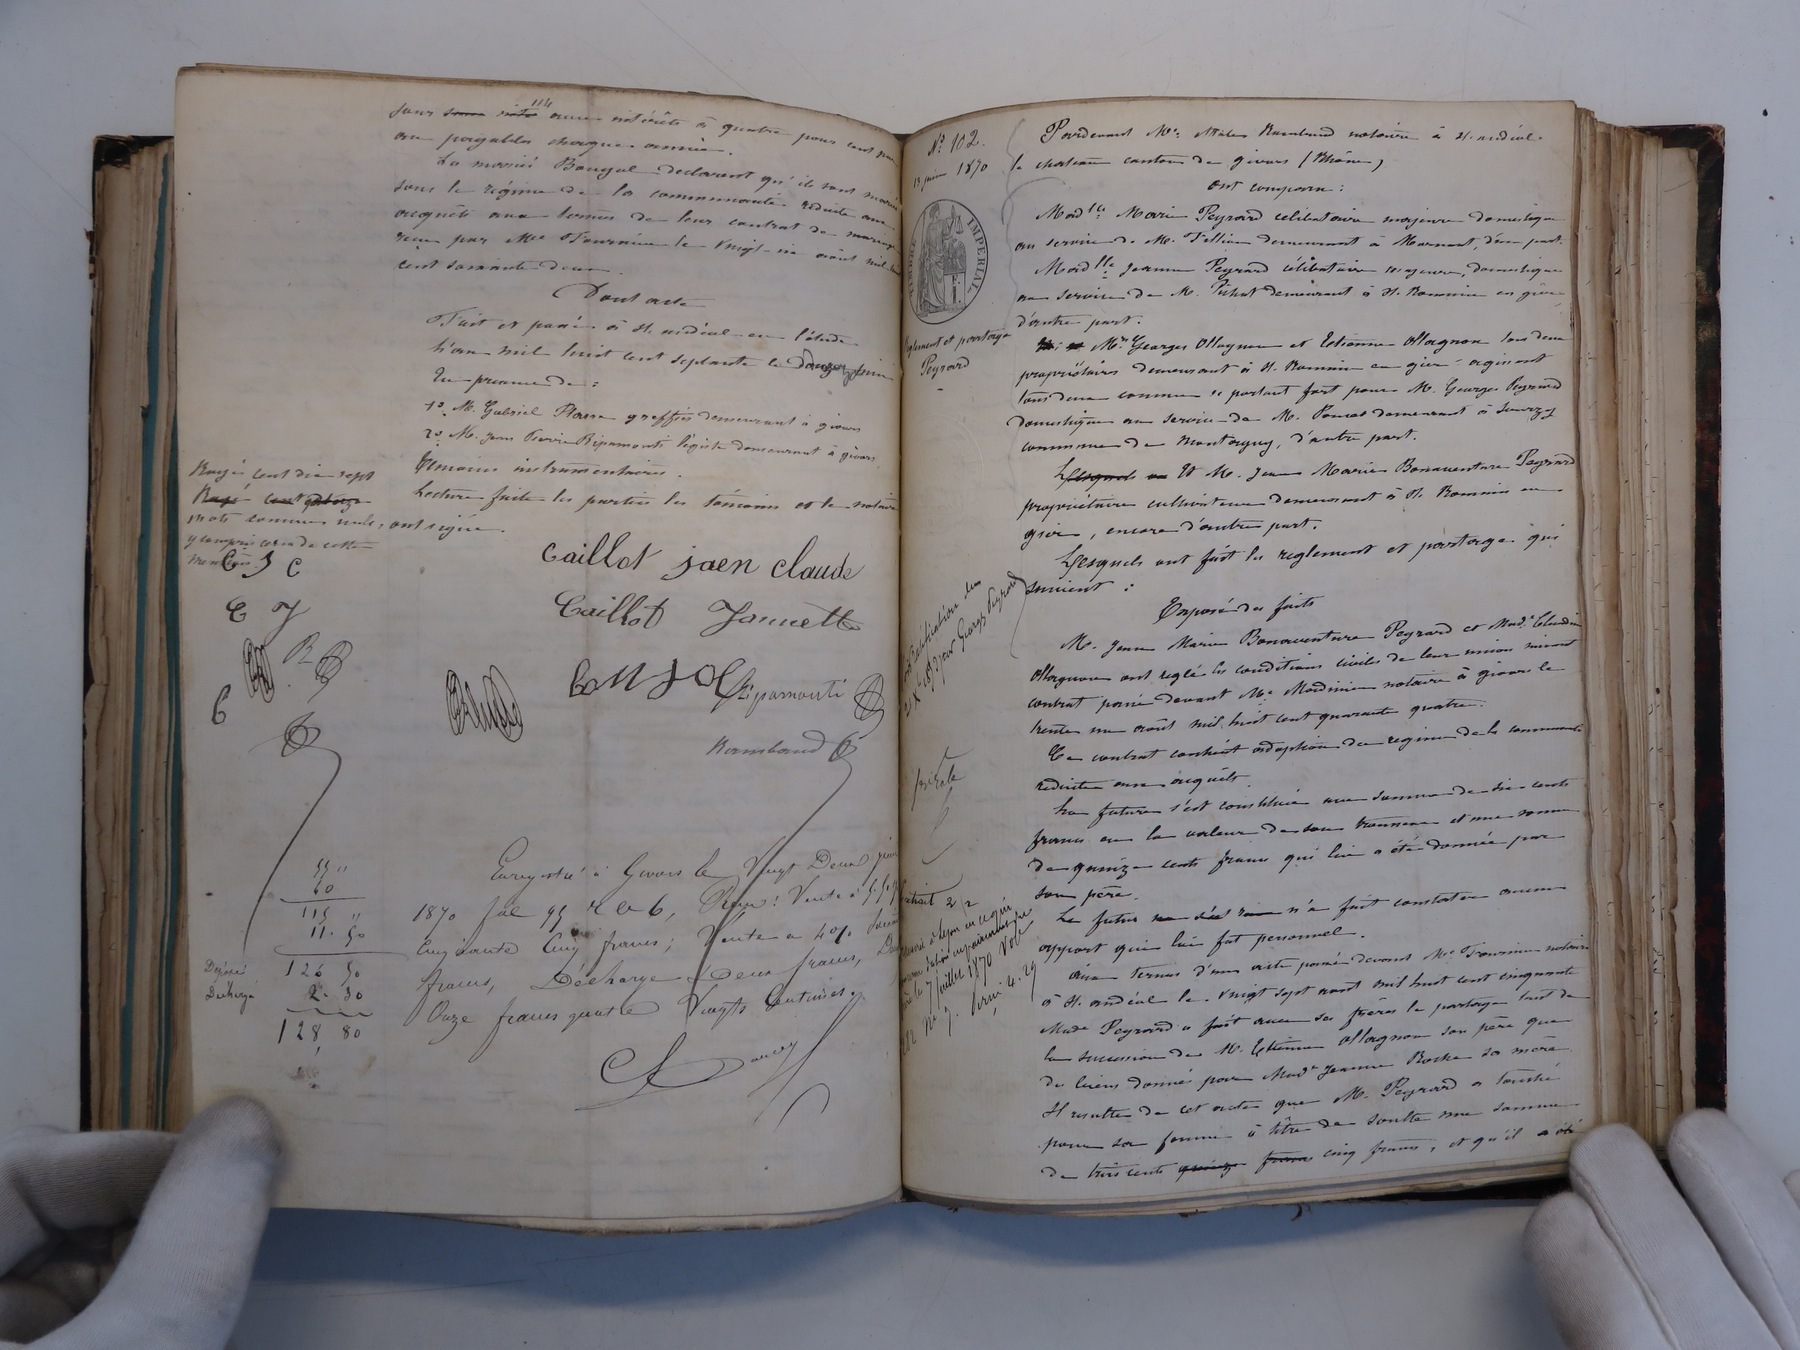 114
jour avec intérêts à quatre pour cent par
an payables chaque année.
Les mariés Boujol déclarent qu'ils sont mariés
sous le régime de la communauté réduite aux
acquêts aux termes de leur contrat de mariage
reçu par Me Fournier le vingt-six août mil huit
cent soixante deux.
Dont acte
Fait et passé à St. andéol en l'étude
L'an mil huit cent septante le douze juin
En présence de :
1o. M. Gabriel Plasse greffier demeurant à givors
2o. M. Jean Pierre Ripamonti légiste demeurant à givors
témoins instrumentaires.
Lecture faite les parties les témoins et le notaire
ont signé.
Rayés cent dix sept
Rayé cent
mots comme nuls,
y compris ceux de cette
mention
C J C
caillot jaen claude
C J
Caillot Jannette
BOUJOL
Ripamonti
Rambaud
55 "
60
115 "
11. 50
126 50
2. 30
128 80
Décharge
Enregistré à Givors le Vingt Deux juin
1870 fol 95 Vo C 6, Reçu : Vente à 5.50 %
Cinquante Cinq francs ; Vente a 4 % Soixante
francs, Décharge Deux francs,
Onze francs quatre Vingts Centimes.
No. 102.
13 juin 1870
TIMBRE IMPERIAL
Reglement et partage
Peyrard
Pardevant Me. Rambaud notaire à St. andéol-
le chateau canton de givors (Rhône)
ont comparu :
Madlle Marie Peyrard célibataire majeure domestique
au service de M. Tellier demeurant à Mornant, d'une part.
Madlle Jeanne Peyrard célibataire majeure, domestique
au service de M. Pichat demeurant à St. Romain en gier,
d'autre part.
Mrs Georges Ollagnon et Etienne Ollagnon tous deux
propriétaires demeurant à St. Romain en gier agissant
tous deux comme se portant fort pour M. Georges Peyrard
domestique au service de M. Poncet demeurant à Sourzy
commune de Montagny, d'autre part.
Lesquels Et M. Jean Marie Bonaventure Peyrard
propriétaire cultivateur demeurant à St. Romain en
gier, encore d'autre part.
Lesquels ont fait les reglement et partage qui
suivent :
Exposé des faits
M. Jean Marie Bonaventure Peyrard et Made Claudine
Ollagnon ont reglé les conditions civiles de leur union suivant
contrat passé devant Me Mardinier notaire à givors le
trente un août mil huit cent quarante quatre.
Ce contrat contient adoption du regime de la communauté
reduite aux acquêts.
La future s'est constituée une somme de six cents
francs en la valeur de son trousseau et une somme
de quinze cents francs qui lui a été donnée par
son père.
Le futur n'a fait constater aucun
apport qui lui fut personnel.
Aux termes d'un acte passé devant Me. Fournier notaire
à St. andéol le vingt sept août mil huit cent cinquante
Made Peyrard a fait avec ses frères le partage tant de
la succession de M. Etienne Ollagnon son père que
de biens donnés par Made Jeanne Roche sa mère.
Il résulte de cet acte que M. Peyrard a touché
pour sa femme à titre de soulte une somme
de trois cents quinze francs cinq francs, et qu'il a été
ratification du
par Georges Peyrard
extrait
7 juillet 1870 Vol